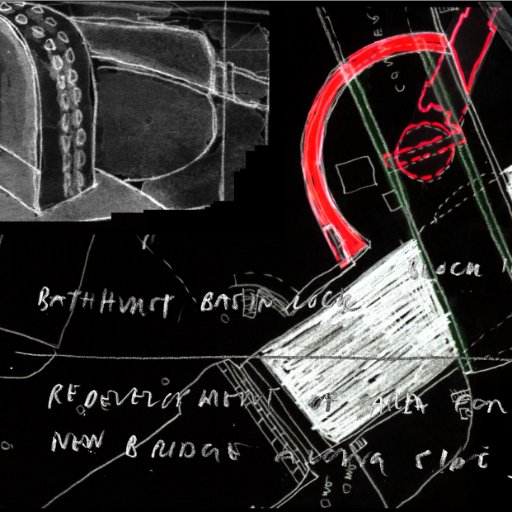 BATHHURST BASIN LOCK
BLOCK
REDEVELOPMENT OF AREA FOR
NEW BRIDGE ALONG